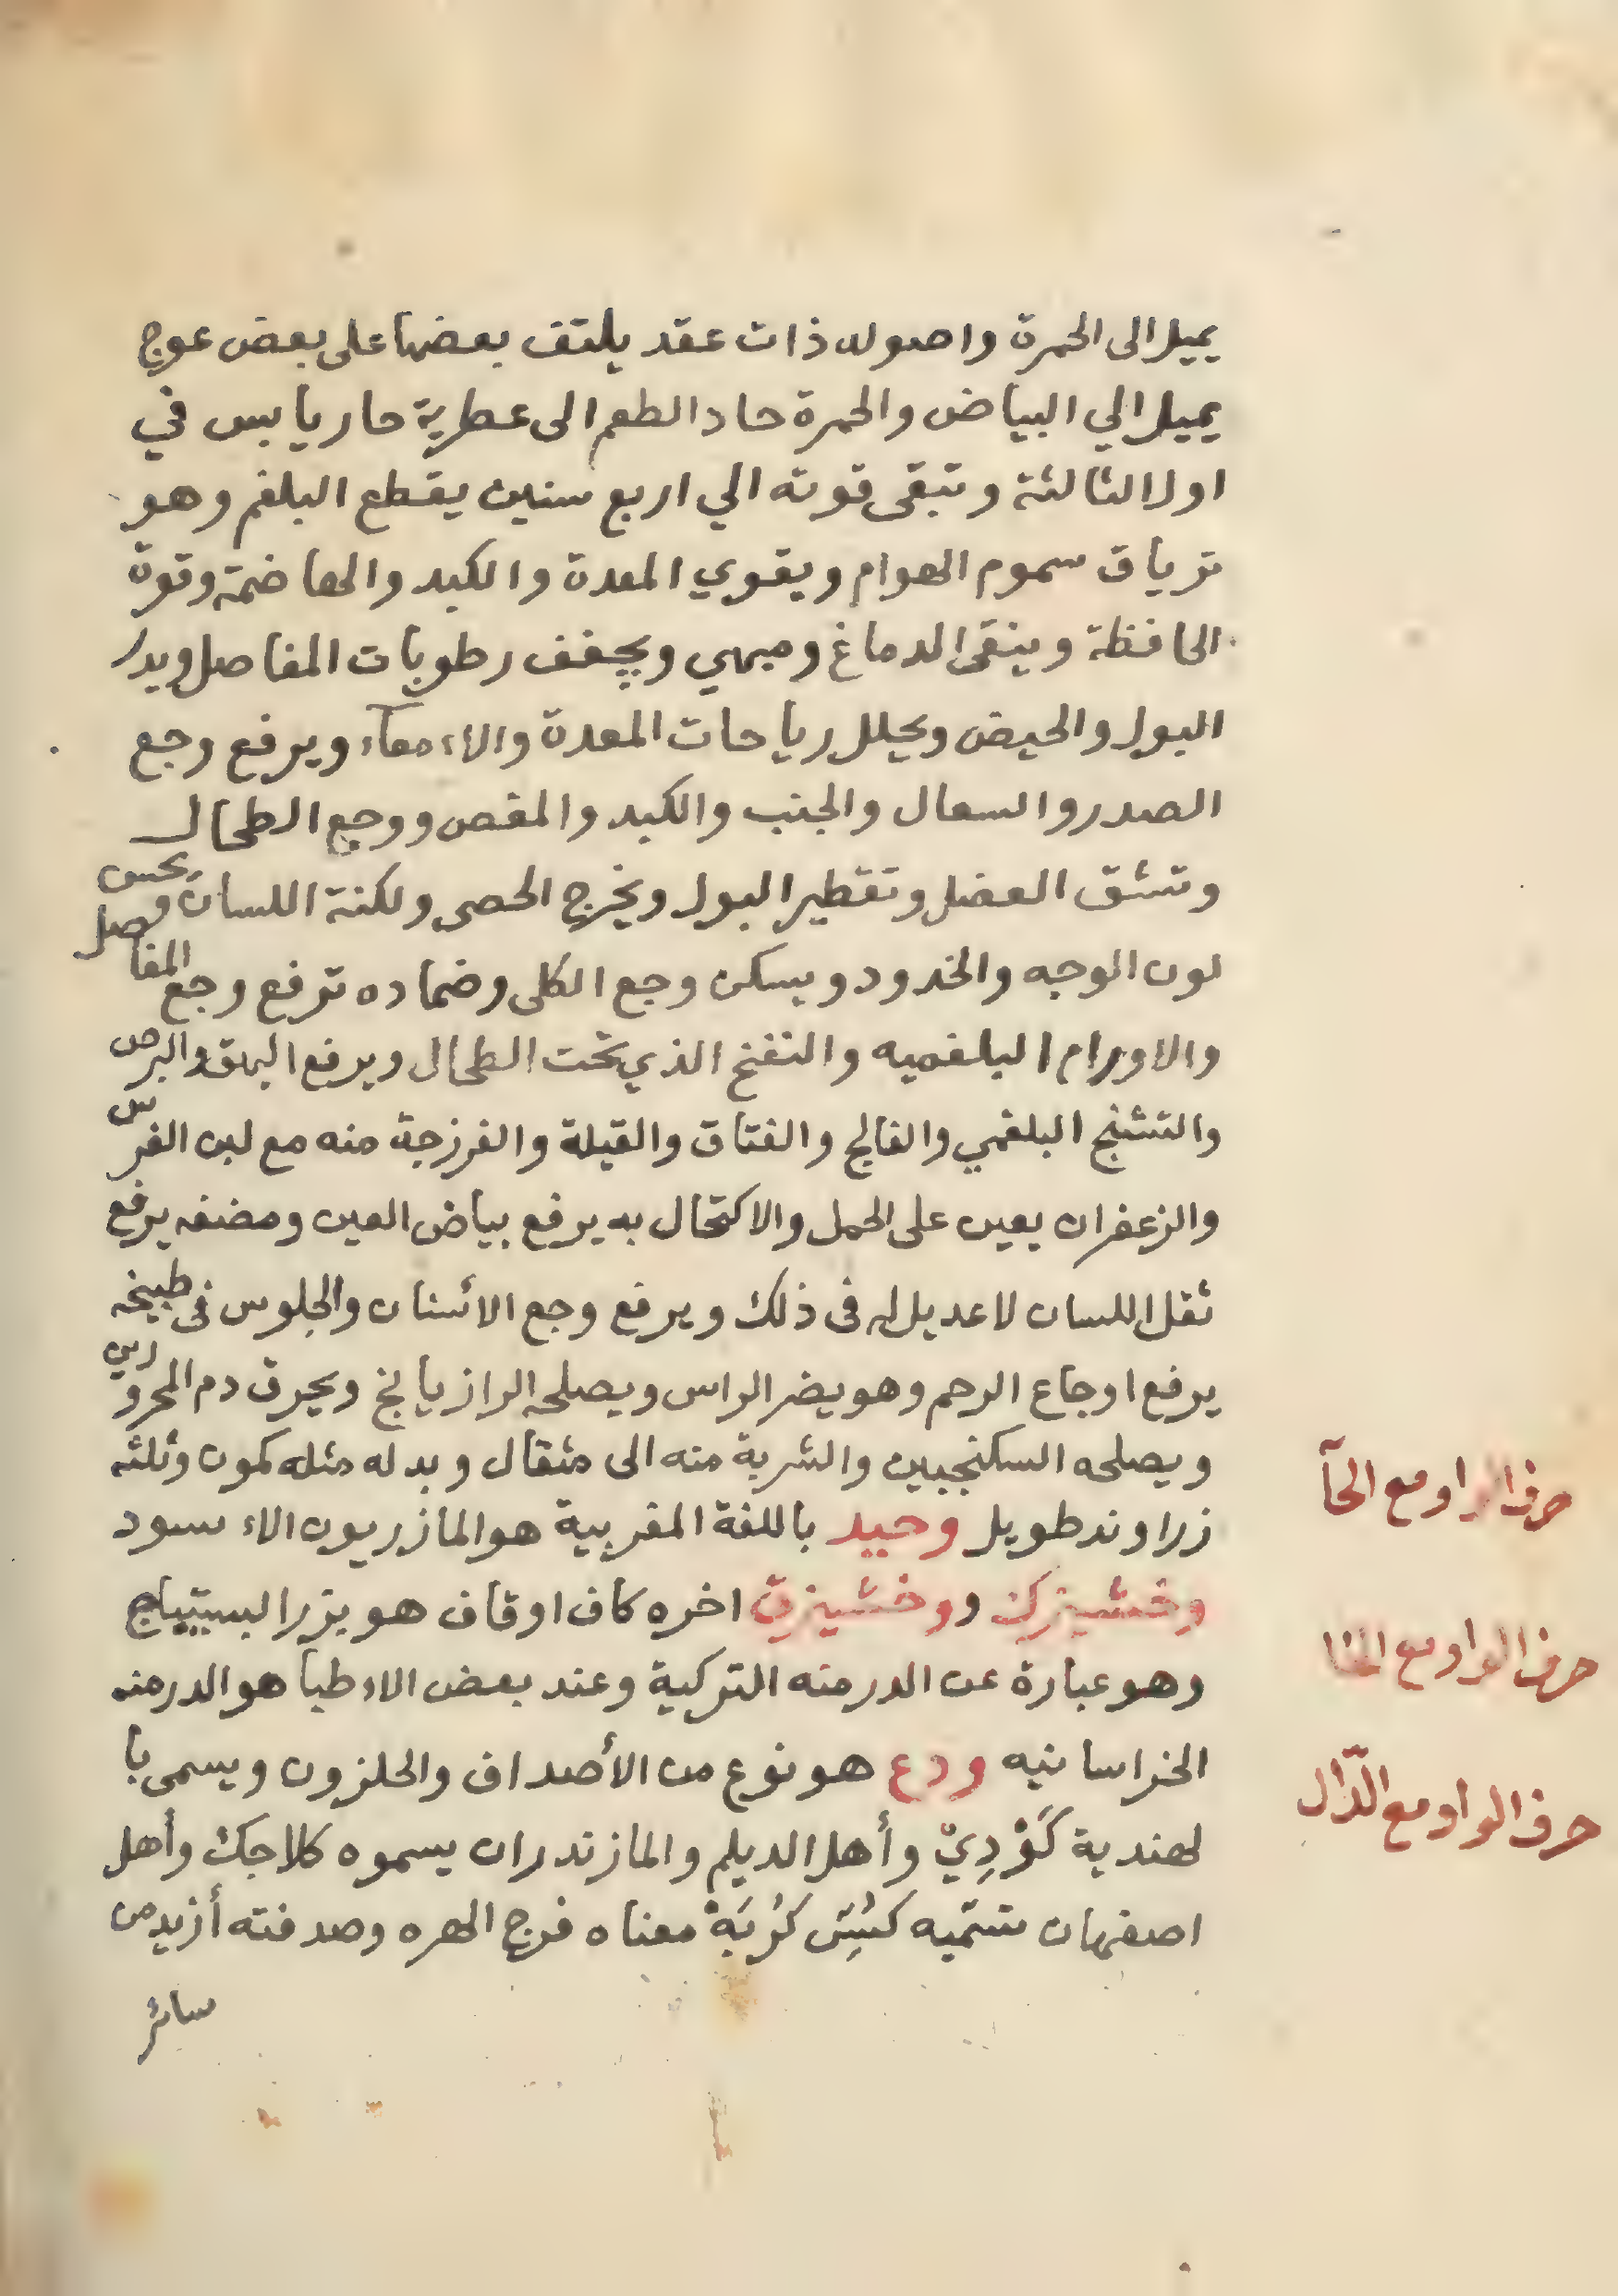 يميل الى الحمرة واصوله ذات عقد يلتف بعضها على بعض عوج
يميل الي البياض والحمرة حاد الطعم الى عطرية حار يابس في
اول الثالثة وتبقى قوته الي اربع سنين يقطع البلغم وهو
ترياق سموم الهوام ويقوي المعدة والكبد والهاضمة وقوة
الحافظة وينقى الدماغ ومبهي ويجفف رطوبات المفاصل ويدر
البول والحيض ويحلل رياحات المعدة والاءمعآء ويرفع وجع
الصدر والسعال والجنب والكبد والمغص ووجع الطحال
وتشق العضل وتقطير البول ويخرج الحصى ولكنة اللسان ويحسن
لون الوجه والخدود ويسكن وجع الكلى وضماده ترفع وجع المفاصل
والاورام البلغميه والنفخ الذي تحت الطحال ويرفع البهق والبرص
والتشنج البلغمي والفالج والفتاق والقيلة والفرزجة منه مع لبن الفرس
والزعفران يعين على الحمل والاكتحال به يرفع بياض العين ومضغه يرفع
ثقل اللسان لا عديل له فى ذلك ويرفع وجع الائسنان والجلوس فى طبيخه
يرفع اوجاع الرحم وهو يضر الراس ويصلحه الرازيانج ويحرق دم المحرورين
ويصلحه السكنجبين والشربة منه الى مثقال وبدله مثله كمون وثلثه
زراوند طويل وحيد باللغة المغربية هو المازريون الاءسود
وخشيزك ووخشيزق اخره كاف او قاف هو بزر البستيباج
وهو عبارة عن الدرمنه التركية وعند بعض الاءطبا هو الدرمنه
الخراسانيه ودع هو نوع من الأصداف والحلزون ويسمى با
لهندية كَوْدِيْ وأهل الديلم والمازندران يسموه كلاجك وأهل
اصفهان تسَمّيه كسُِسَ كرُبَهْ معناه فرج الهره وصدفته أزيد من
سائر
حرف الواو مع الحآ
حرف الواو مع الخا
حرف الواو مع الدّال